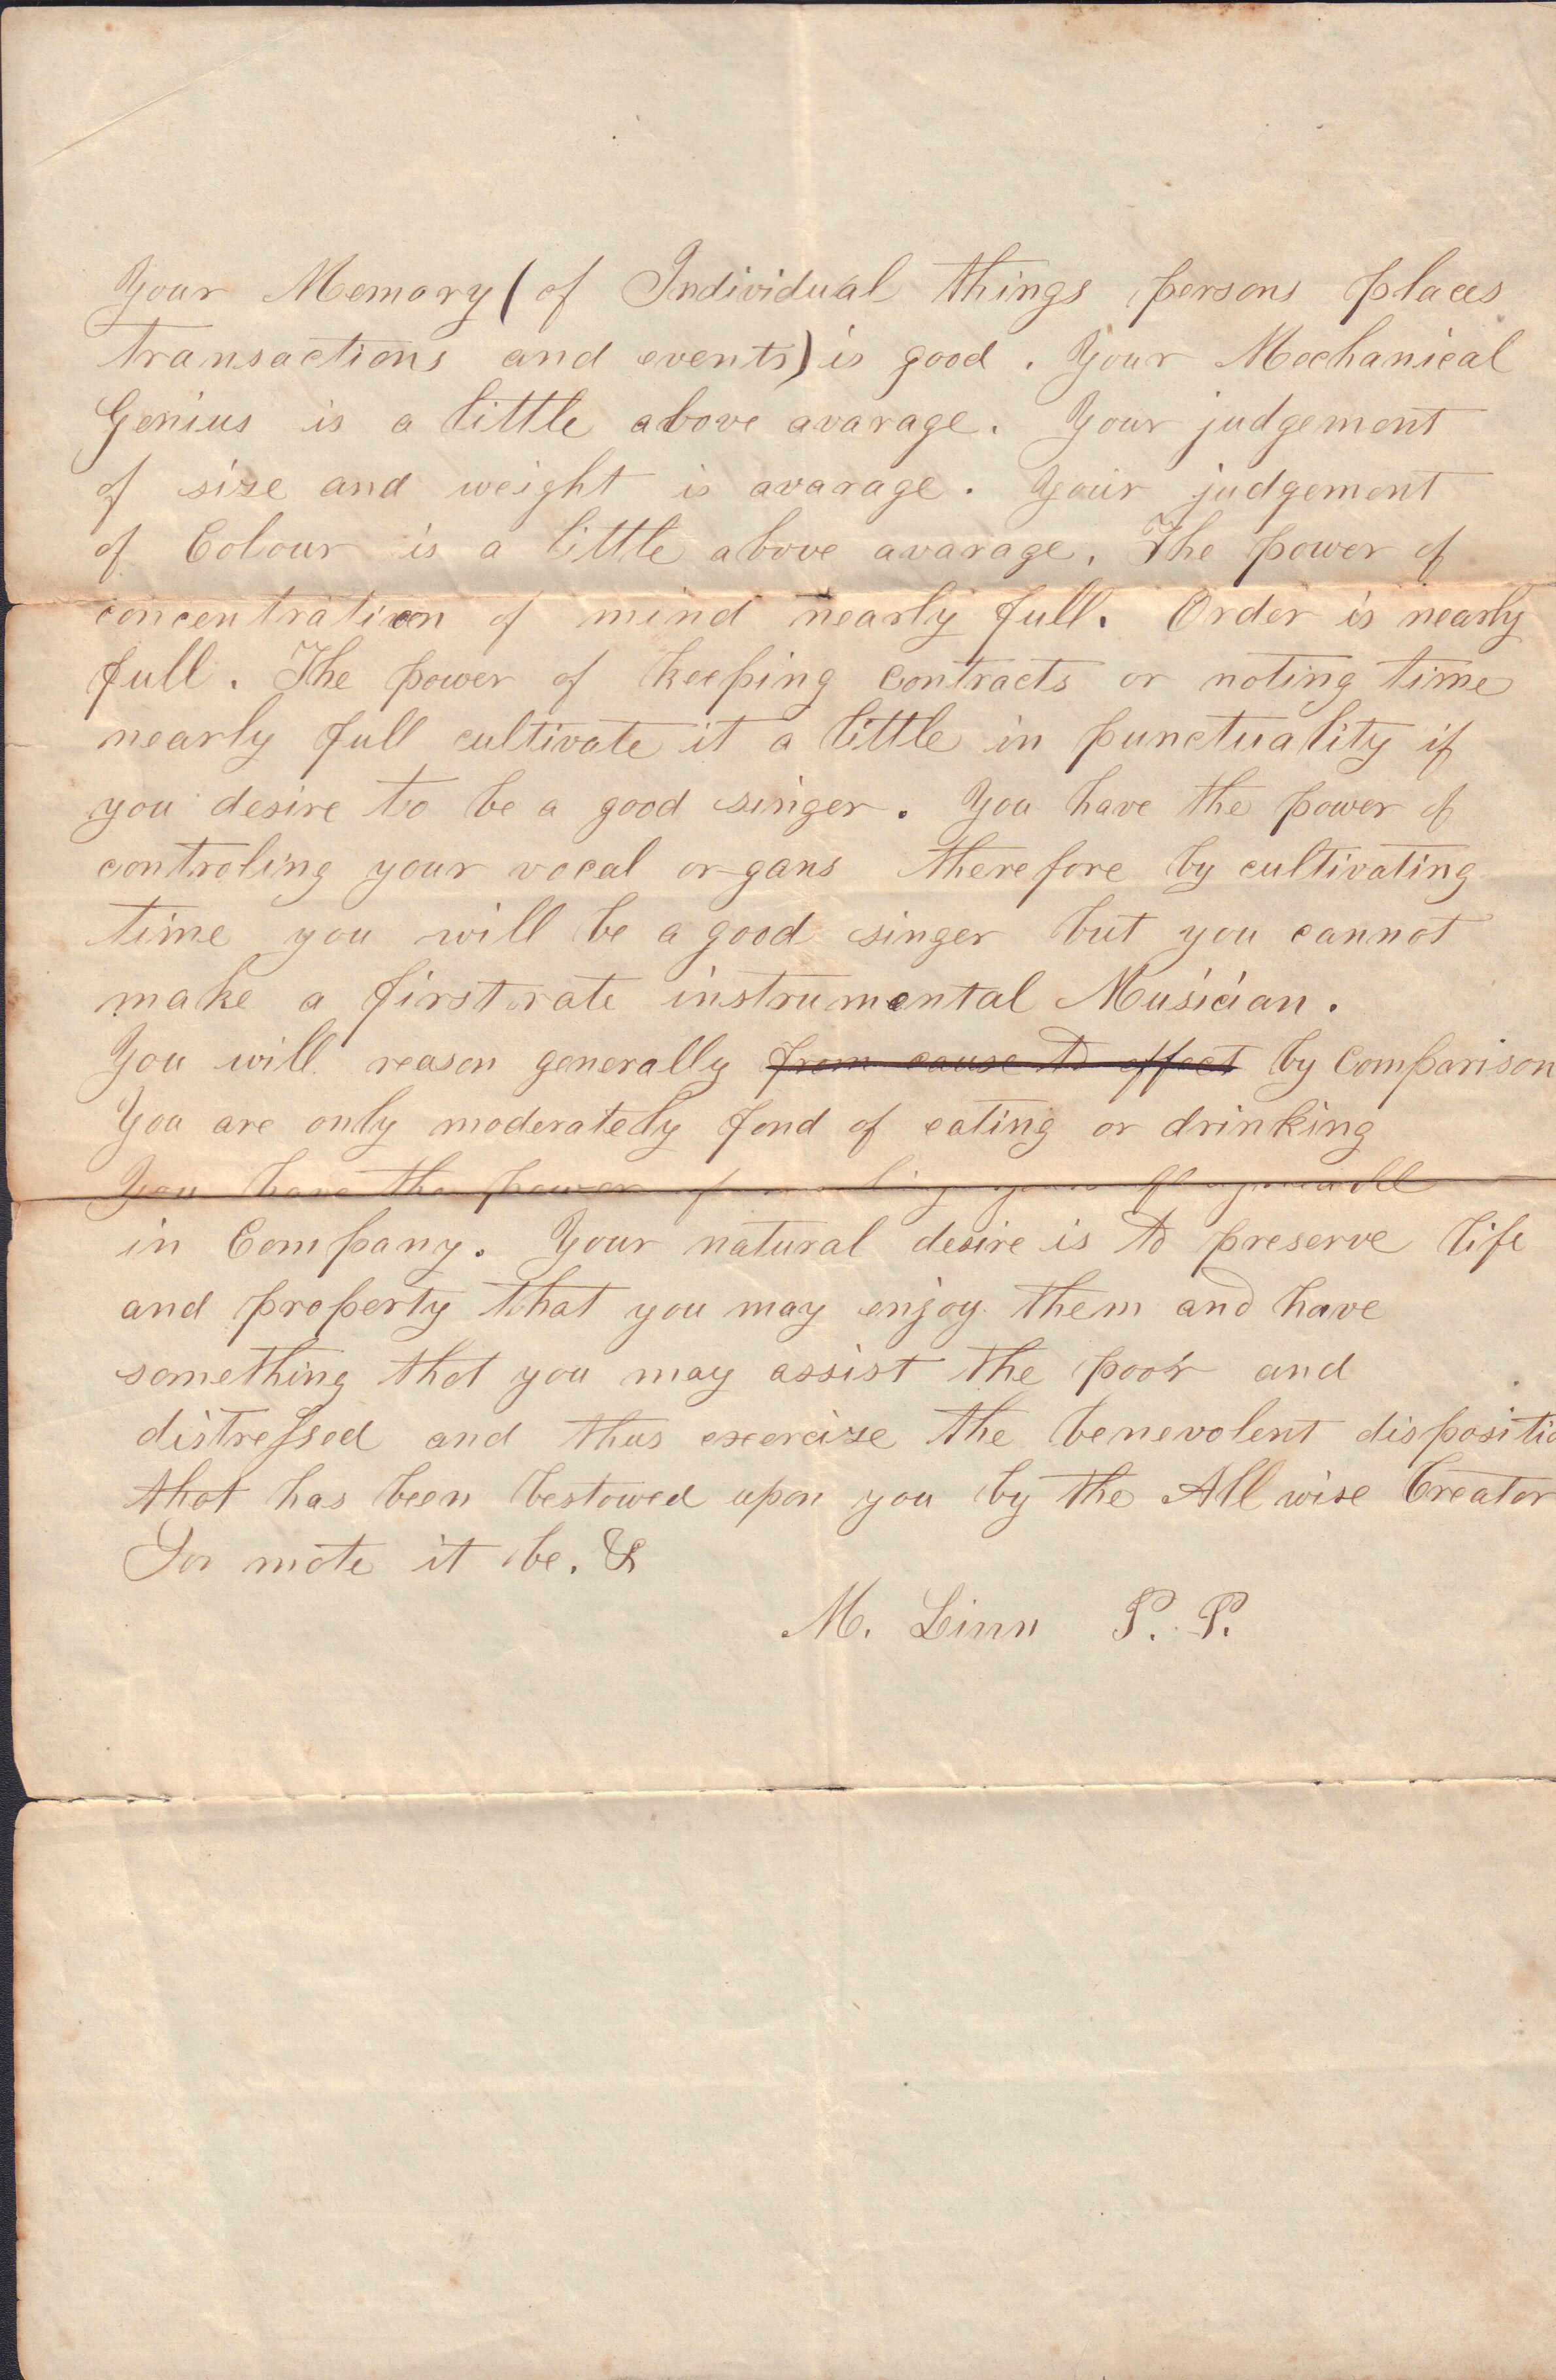 Your Memory ( of Individual things persons places
transactions and events) is good. Your Mechanical
Genius is a little above avarage. Your judgement
of size and weight is avarage. Your judgement
of Colour is a little above avarage. The power of
concentration of mind nearly full. Order is nearly
full. The power of keeping contracts or noting time
nearly full cultivate it a little in punctuality if
you desire to be a good singer. You have the power of
controling your vocal organs therefore by cultivating
time you will be a good singer but you cannot
make a first rate instrumental Musician.
You will reason generally from cause to effect by Comparison
You are only moderately fond of eating or drinking
You have the power of
in Company. Your natural desire is to preserve life
and property that you may enjoy them and have
something that you may assist the poor and
distressed and thus exercise the benevolent dispositio
that has been bestowed upon you by the All wise Creator
So mote it be. &
M. Linn P. P.